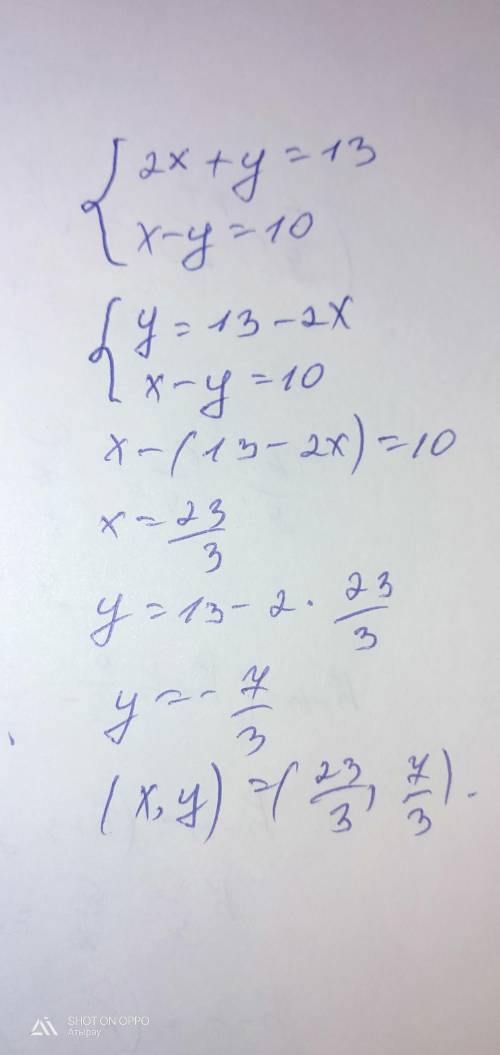 { 2x + y = 13
x - y = 10
{ y = 13 - 2x
x - y = 10
x - (13 - 2x) = 10
x = 23/3
y = 13 - 2 · 23/3
y = - 7/3
(x, y) = (23/3, 7/3).
SHOT ON OPPO
Атырау